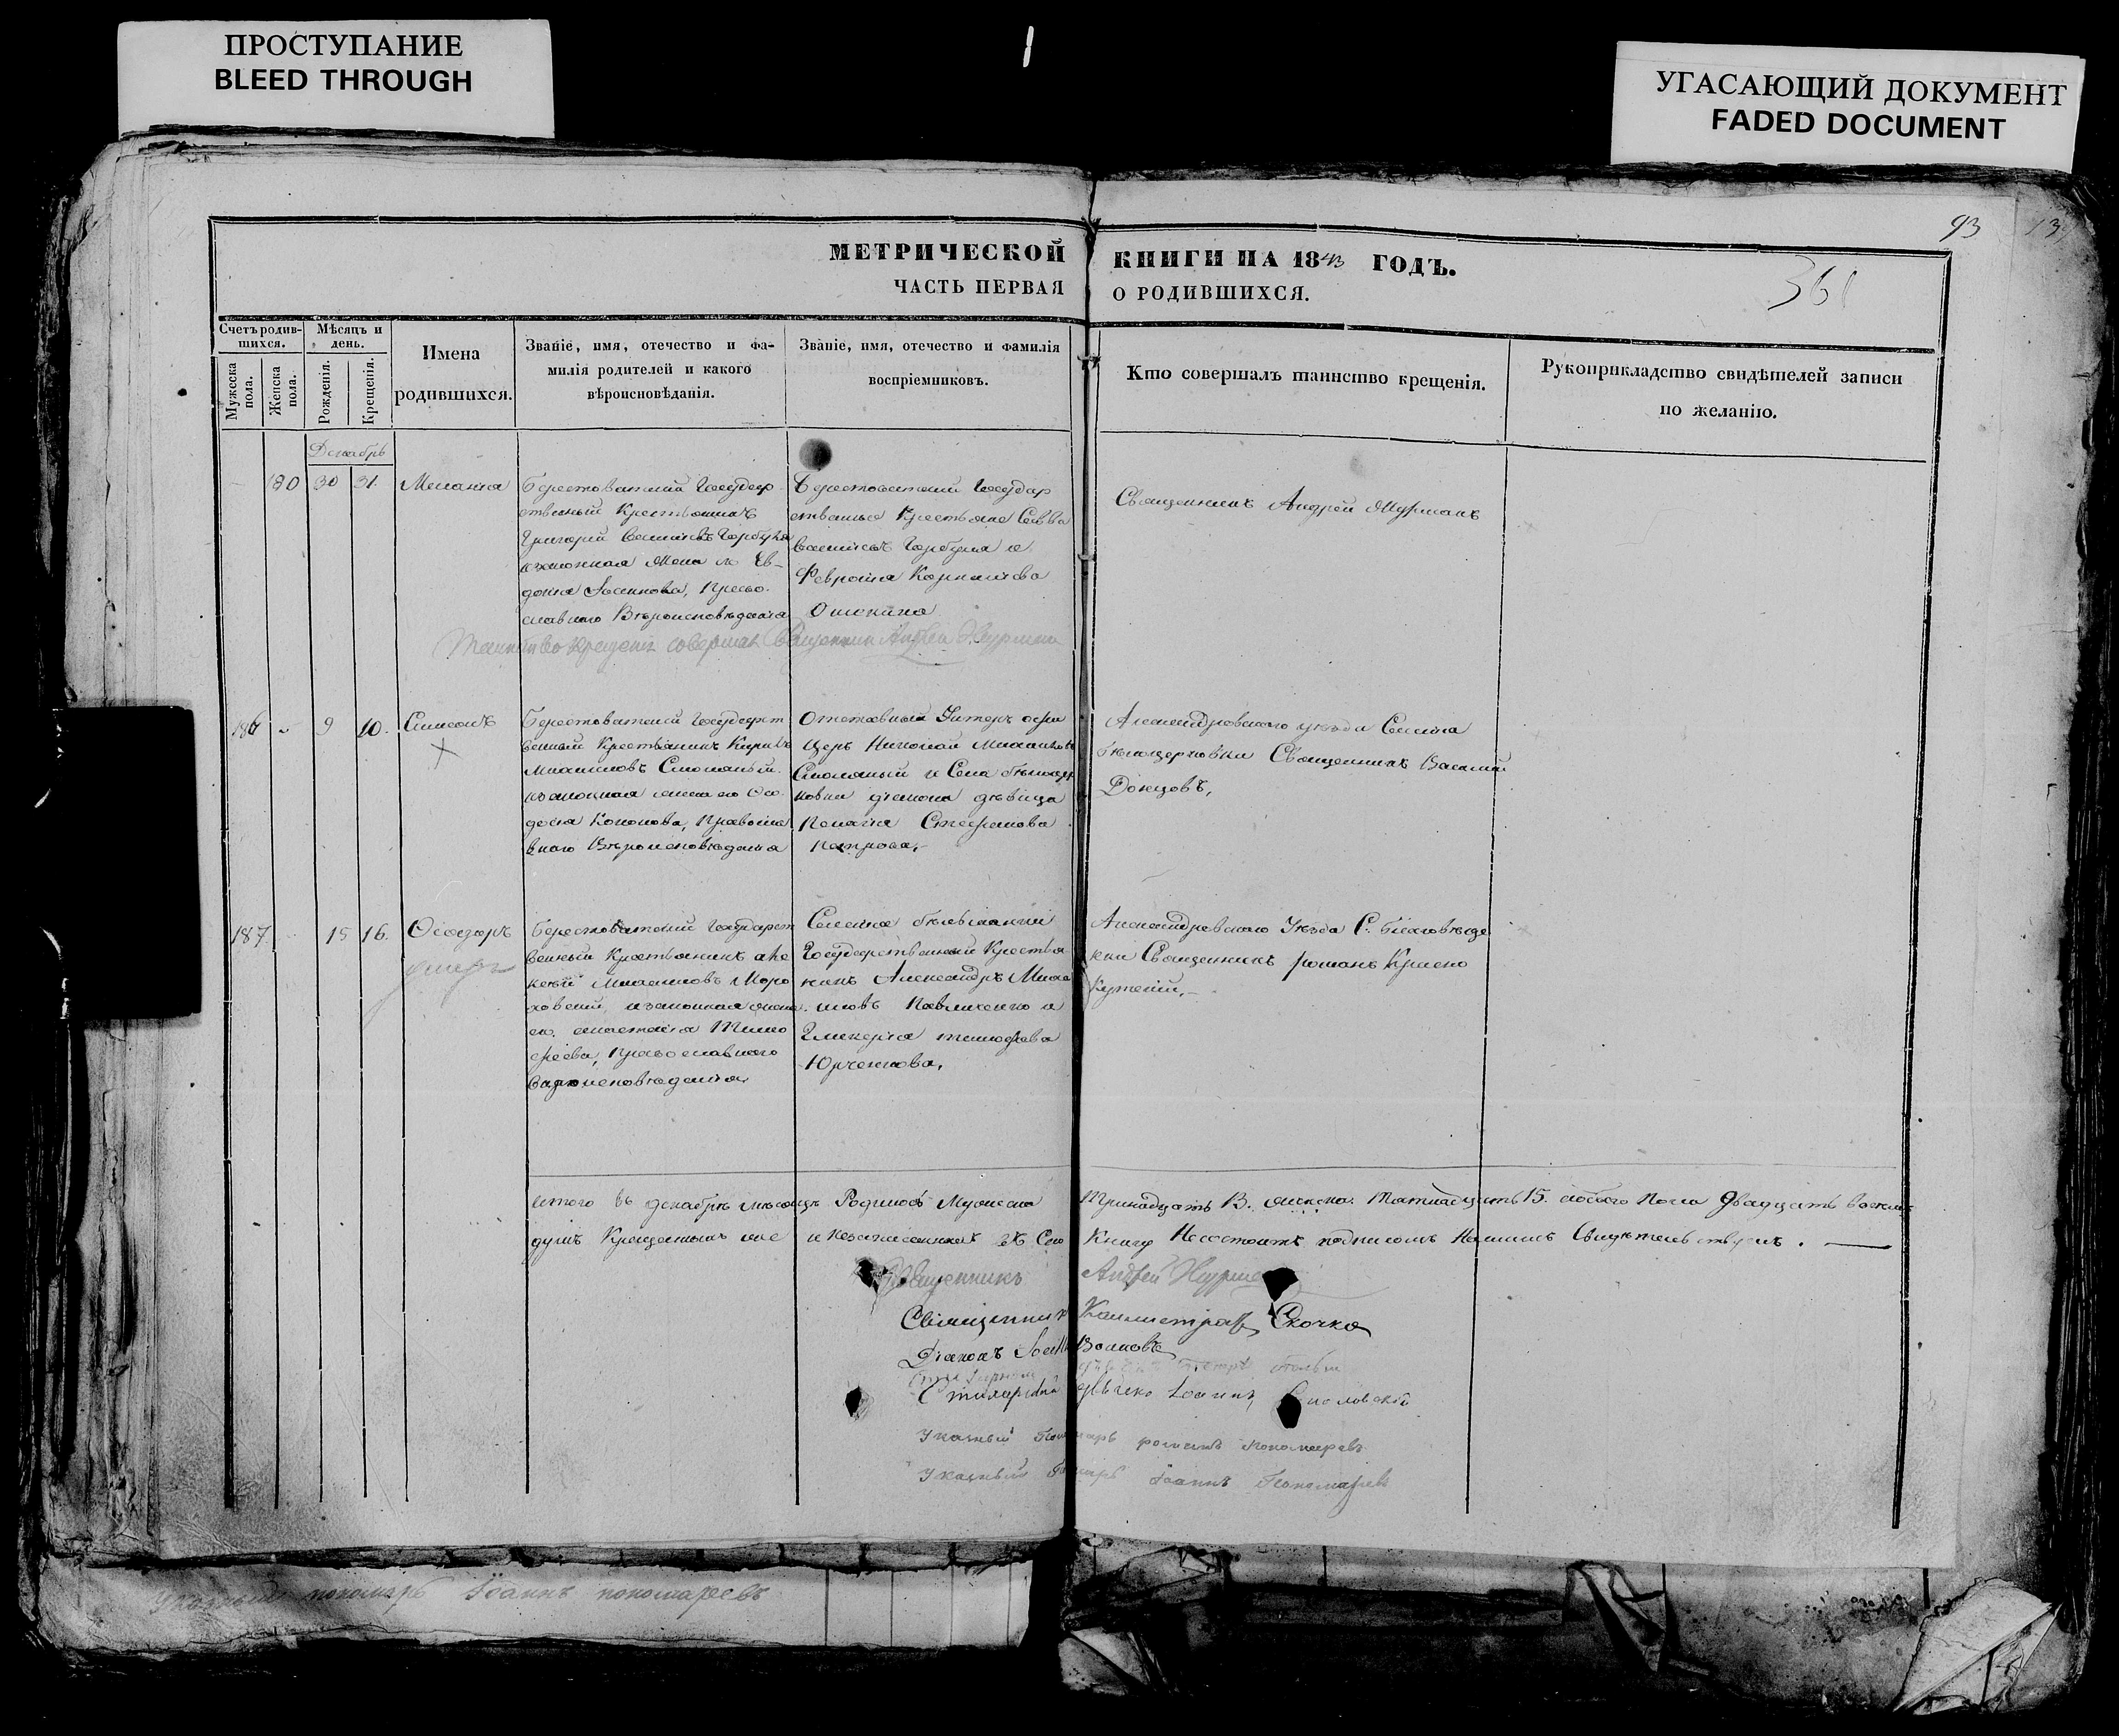 ПРОСТУПАНИЕ
BLEED THROUGH
УГАСАЮЩИЙ ДОКУМЕНТ
FADED DOCUMENT
93
МЕТРИЧЕСКОЙ КНИГИ НА 1843 ГОДЪ.
361
ЧАСТЬ ПЕРВАЯ О РОДИВШИХСЯ.
Счетъ родив-
шихся.
Мужеска
пола.
Женска
пола.
Мѣсяцъ и
день.
Рожденія.
Крещенія.
Имена
родившихся.
Званіе, имя, отечество и фа-
милія родителей и какого
вѣроисповѣданія.
Званіе, имя, отечество и фамилія
воспріемниковъ.
Кто совершалъ таинство крещенія.
Рукоприкладство свидѣтелей записи
по желанію.
Декабрь
180 30 31.
Меланія
Берестоватский Государ
ственный Крестьянинъ
Григорий
законная жена его Ев-
докия
славного Вѣроисповѣдания
Берестоватский Государ
ственные Крестьяне Савва
и
Феврония
Священникъ Андрей Журманъ
Таинство крещенія совершал Священник Андрей Журман
186 9 10.
Симеонъ
Берестоватский Государст
венный Крестьянинъ Кирилъ
Михаиловъ Смоляный
законная жена его Фео
досия Кононова, Правосла
вного Вѣроисповѣдания
Отставный Унтеръ офи
церъ Николай Михаиловъ
Смоляный и Села Бѣлоцер
ковки диакона дѣвица
Пелагия Стефанова
Петрова,
Александровского уѣзда Селения
Бѣлоцерковки Священникъ Василий
Донцовъ,
187 15 16.
Феодоръ
умеръ
Берестоватский Государст
венный Крестьянинъ Але
ксѣй Михаиловъ Моро
ховский, изаконная жена
его Анастасия Тимо
феева, Православного
Вѣроисповѣдания,
Селения
Государственный Крестья
нинъ Александръ Миха
иловъ Павличенко и
Гликерия Тимофеева
Юрченкова,
Александровского Уѣзда С. Благовѣще
нки Священникъ Романъ
Итого въ декабрѣ мѣсяцѣ Родилось Мужеска Тринадцать 13. женска Пятнадцать 15. обоего Пола Двадцать восемь
душъ Крещенныхъ же и незаписанныхъ въ Сию Книгу Несостоитъ подписомъ Нашимъ Свидѣтельствуемъ.
Священникъ Андрей Журман
Священникъ Каллистратъ Скочко
Диаконъ Волковъ
Стихарный
Стихарный Иоаннъ
Указный Пономарь романъ пономаревъ
Указный Пономарь Іоаннъ Пономаревъ
Указный пономарь Іоаннъ пономаревъ